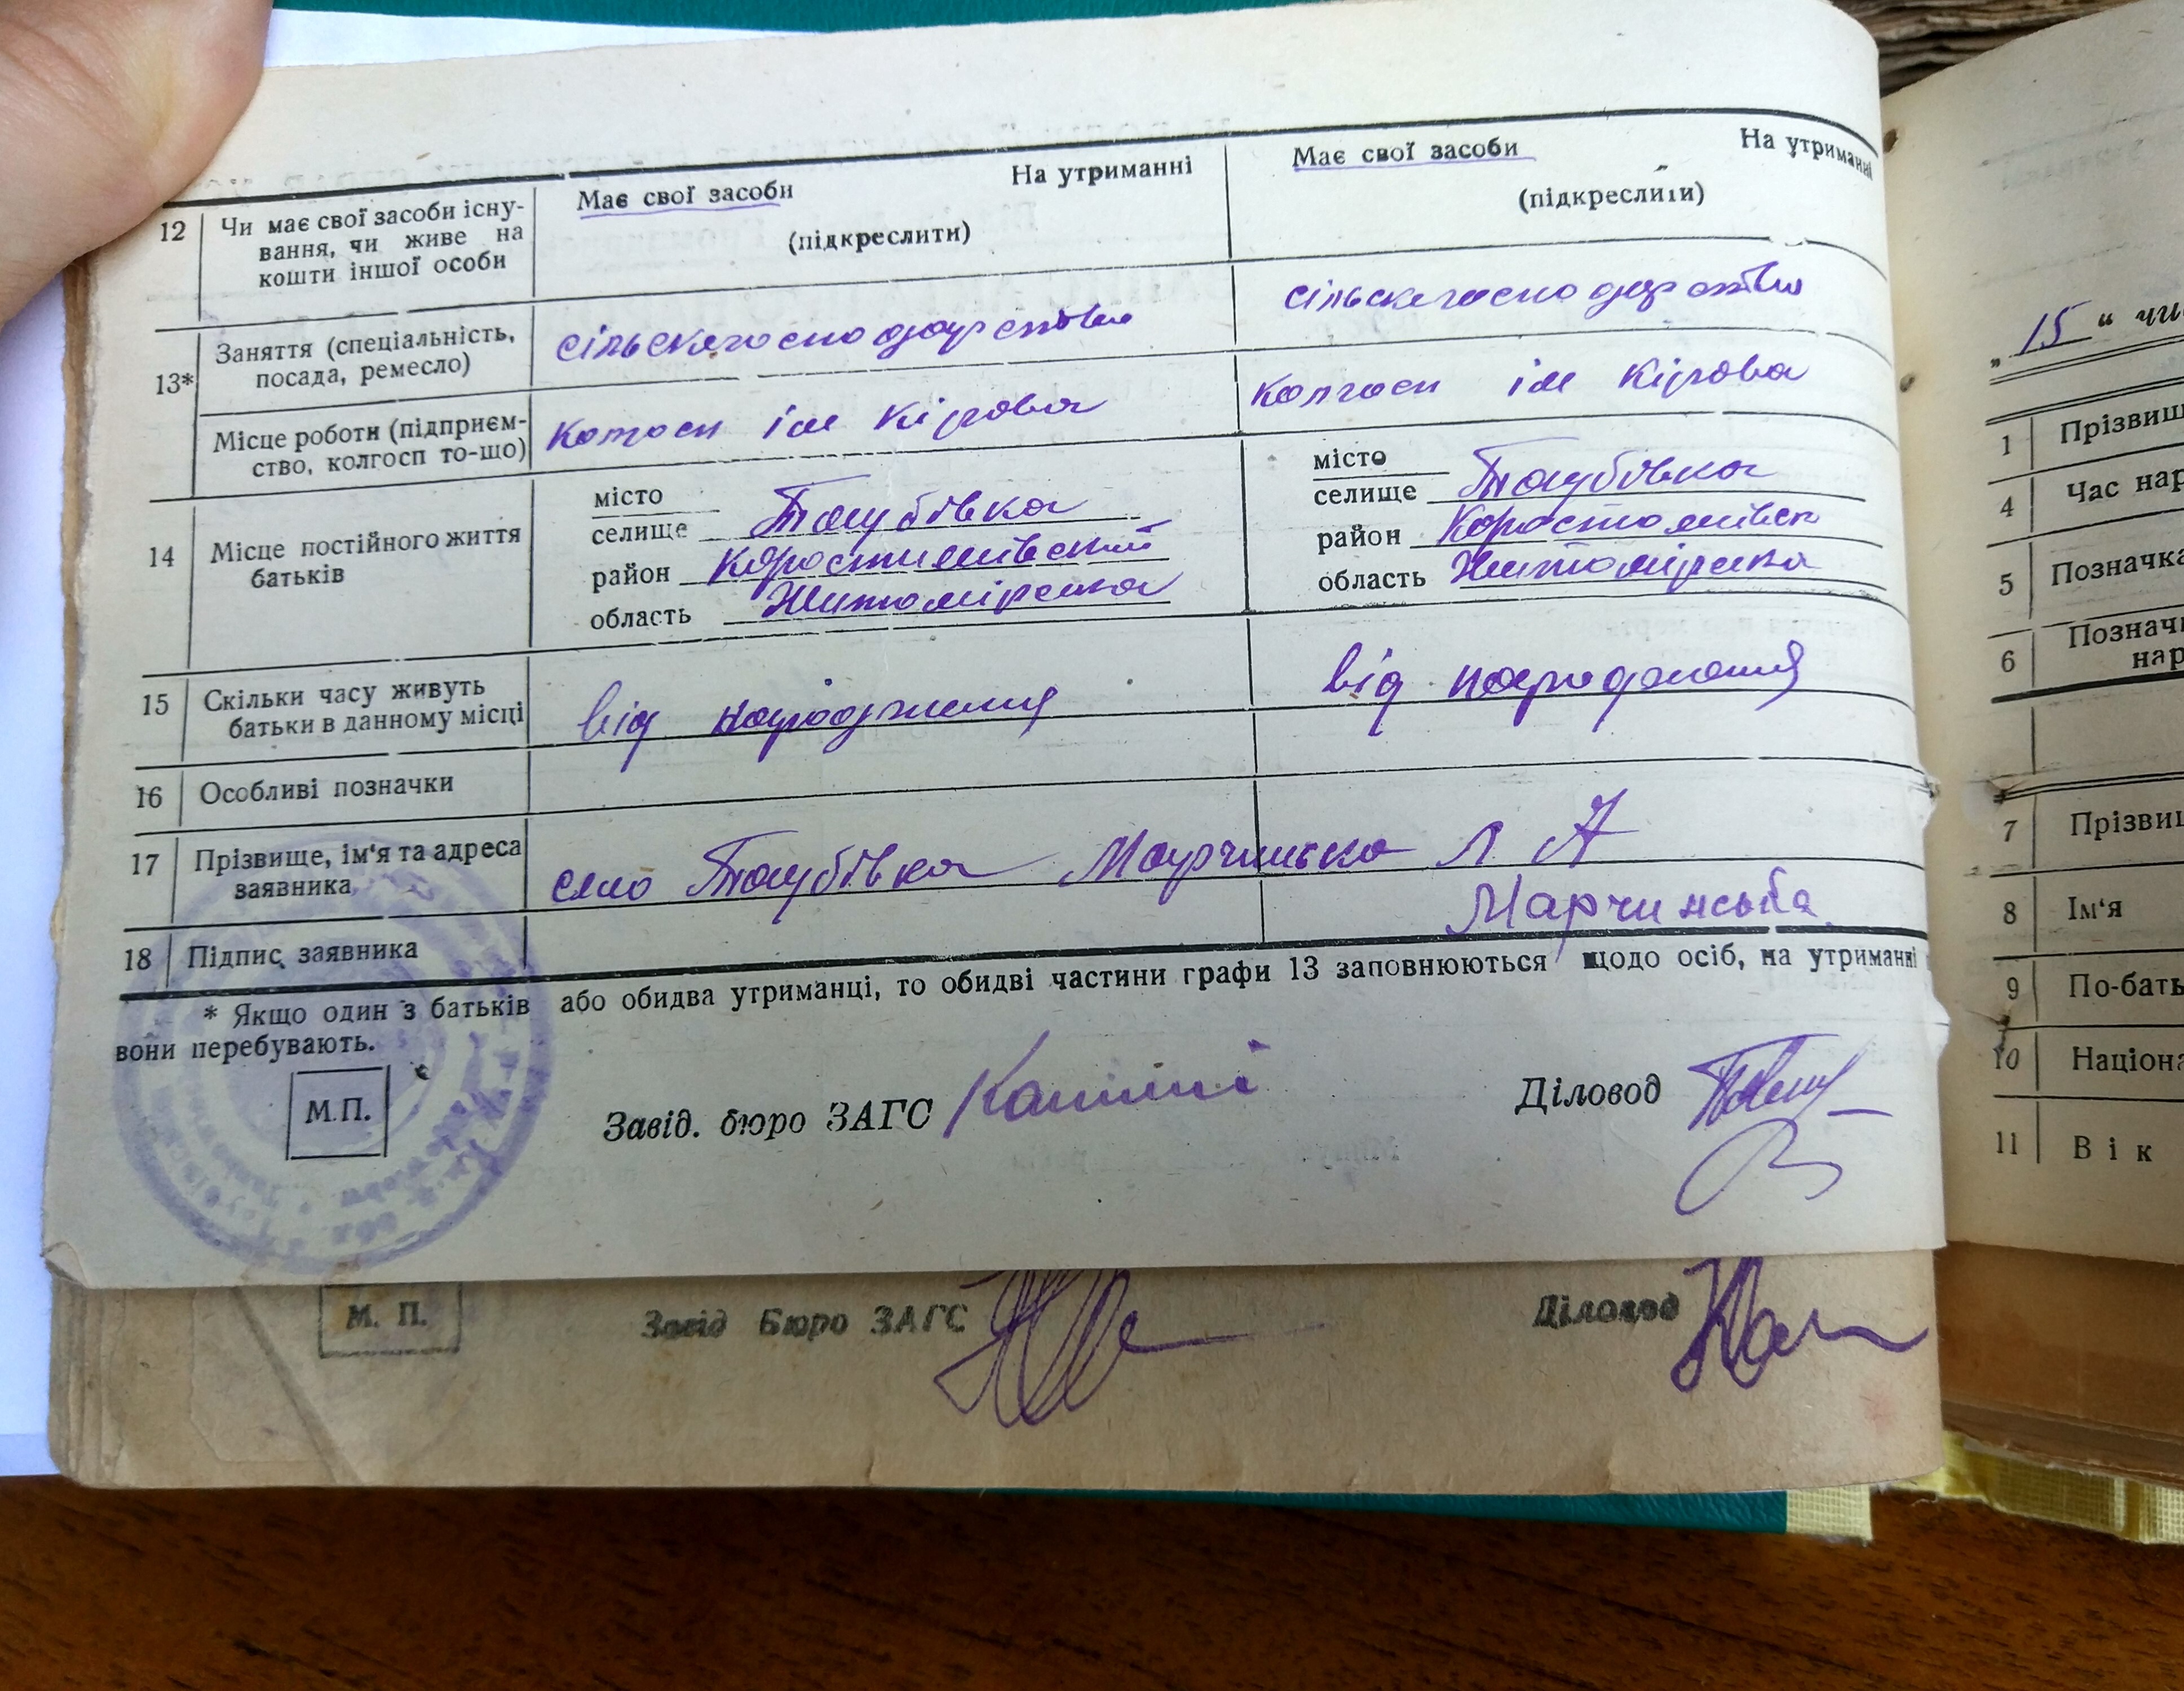 12 Чи має свої засоби існу- Має свої засоби На утриманні Має свої засоби На утриманні
вання, чи живе на (підкреслити) (підкреслити)
кошти іншої особи
13* Заняття (спеціальність,
посада, ремесло)
Місце роботи (підприєм- колгосп ім Кірова колгосп ім Кірова
ство, колгосп то-що)
14 Місце постійного життя
батьків
місто місто
селище Таубівка селище Таубівка
район Коростишівський район
область Житомірська область Житомірська
15 Скільки часу живуть від народження від народження
батьки в данному місці
16 Особливі позначки
17 Прізвище, ім‘я та адреса село Таубівка Марчинська Л А
заявника
18 Підпис заявника Марчинська
* Якщо один з батьків або обидва утриманці, то обидві частини графи 13 заповнюються щодо осіб, на утриманні
вони перебувають.
М.П. Завід. бюро ЗАГС Діловод
М. П. Завід Бюро ЗАГС Діловод
„ 15 “
1 Прізвищ
4 Час нар
5 Позначка
6 Познач
нар
7 Прізвищ
8 Ім‘я
9 По-бать
10 Націона
11 Вік